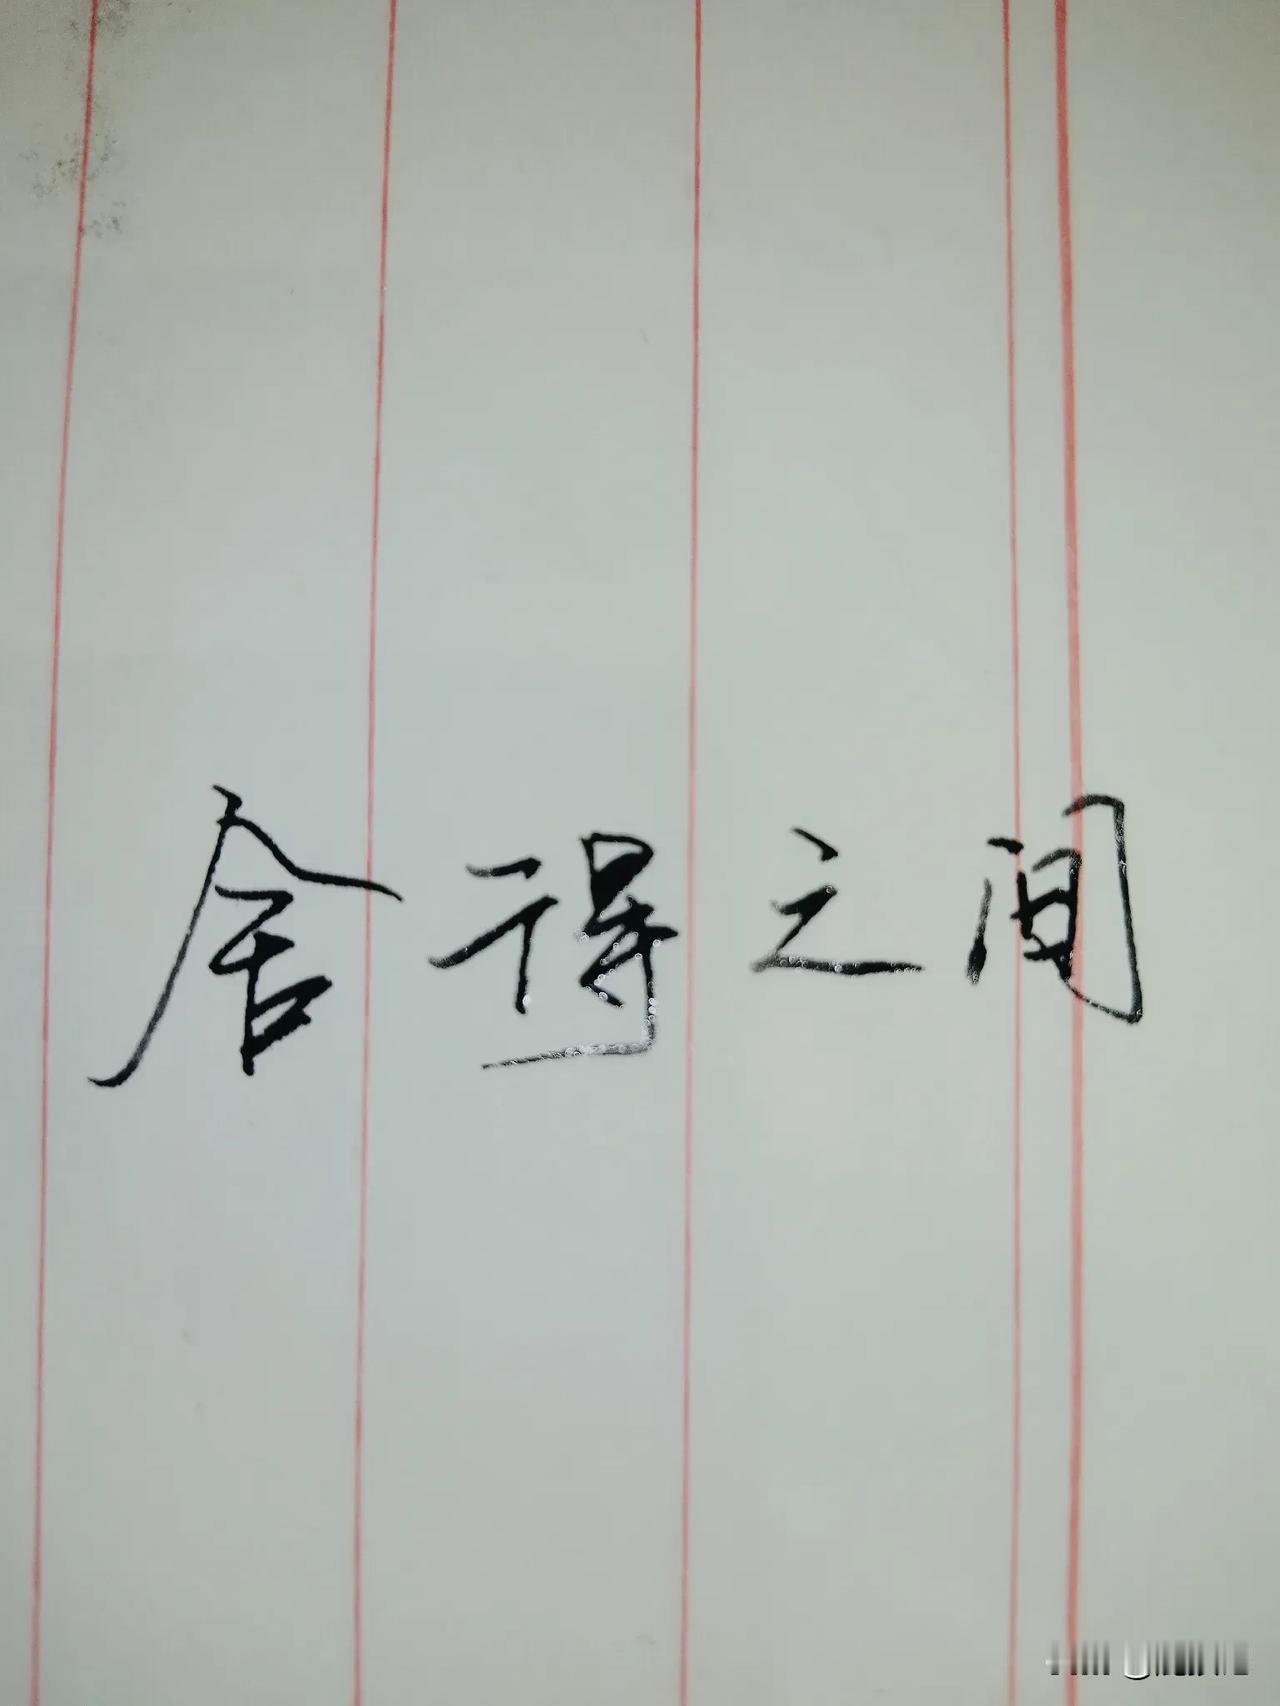 舍得之间